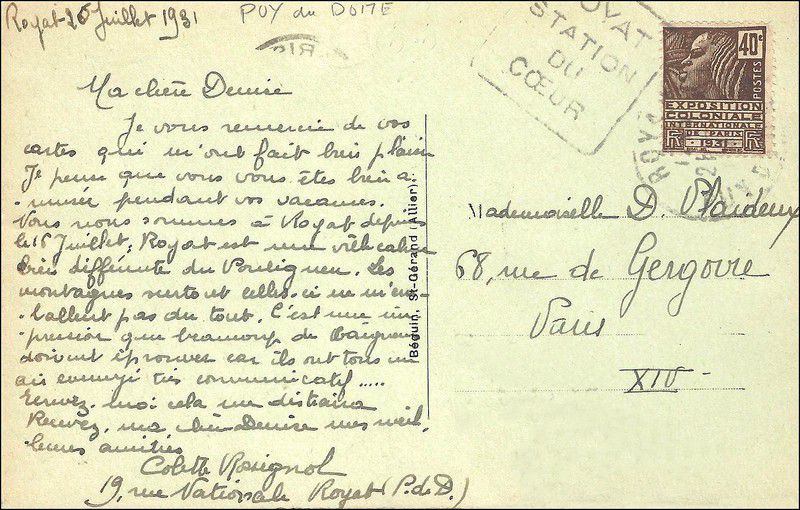 Royat 20 Juillet 1931
PUY du DOME
Ma chère Denise
Je vous remercie de vos
cartes qui m'ont fait bien plaisir
Je pense que vous vous êtes bien a-
-musée pendant vos vacances.
Nous nous sommes à Royat depuis
le 15 Juillet; Royat est une ville calme
bien différente du Pouliguen. Les
montagnes surtout celles-ci ne m'em-
-ballent pas du tout. C'est une im-
-pression que beaucoup de baigneurs
doivent éprouver car ils ont tous un
air ennuyé très communicatif.....
Ecrivez-moi cela me distraira
Recevez, ma chère Denise mes meil-
-leures amitiés
Colette Rossignol
19, rue Nationale Royat (P.de D.)
Béguin, St-Gérand (Allier)
ROYAT
STATION
DU
CŒUR
40c
POSTES
EXPOSITION
COLONIALE
INTERNATIONALE
DE PARIS
RF 1931 RF
Mademoiselle D. Plaideux
68, rue de Gergovie
Paris
XIV